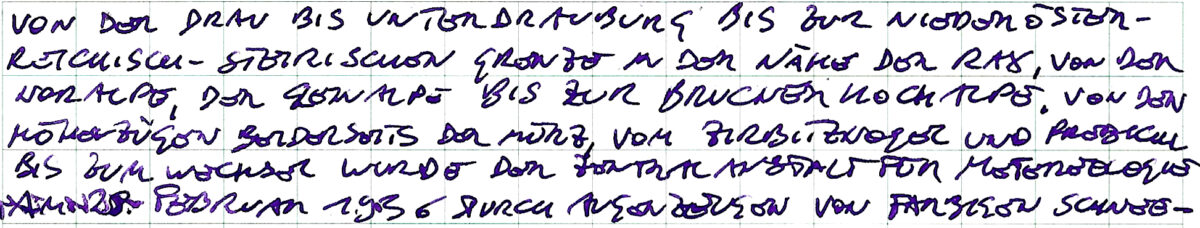 VON DER DRAU BIS UNTERDRAUBURG BIS ZUR NIEDERÖSTER-
REICHISCH-STEIRISCHEN GRENZE IN DER NÄHE DER RAX, VON DER
KORALPE, DER GLEINALPE BIS ZUR BRUCKER HOCHALPE, VON DEN
HÖHENZÜGEN BEIDERSEITS DER MÜRZ, VOM ZIRBITZKOGEL UND PREBICHL
BIS ZUM WECHSEL WURDE DER ZENTRALANSTALT FÜR METEREOLOGIE
FEBRUAR 1936 DURCH AUGENZEUGEN VON FARBIGEN SCHNEE-